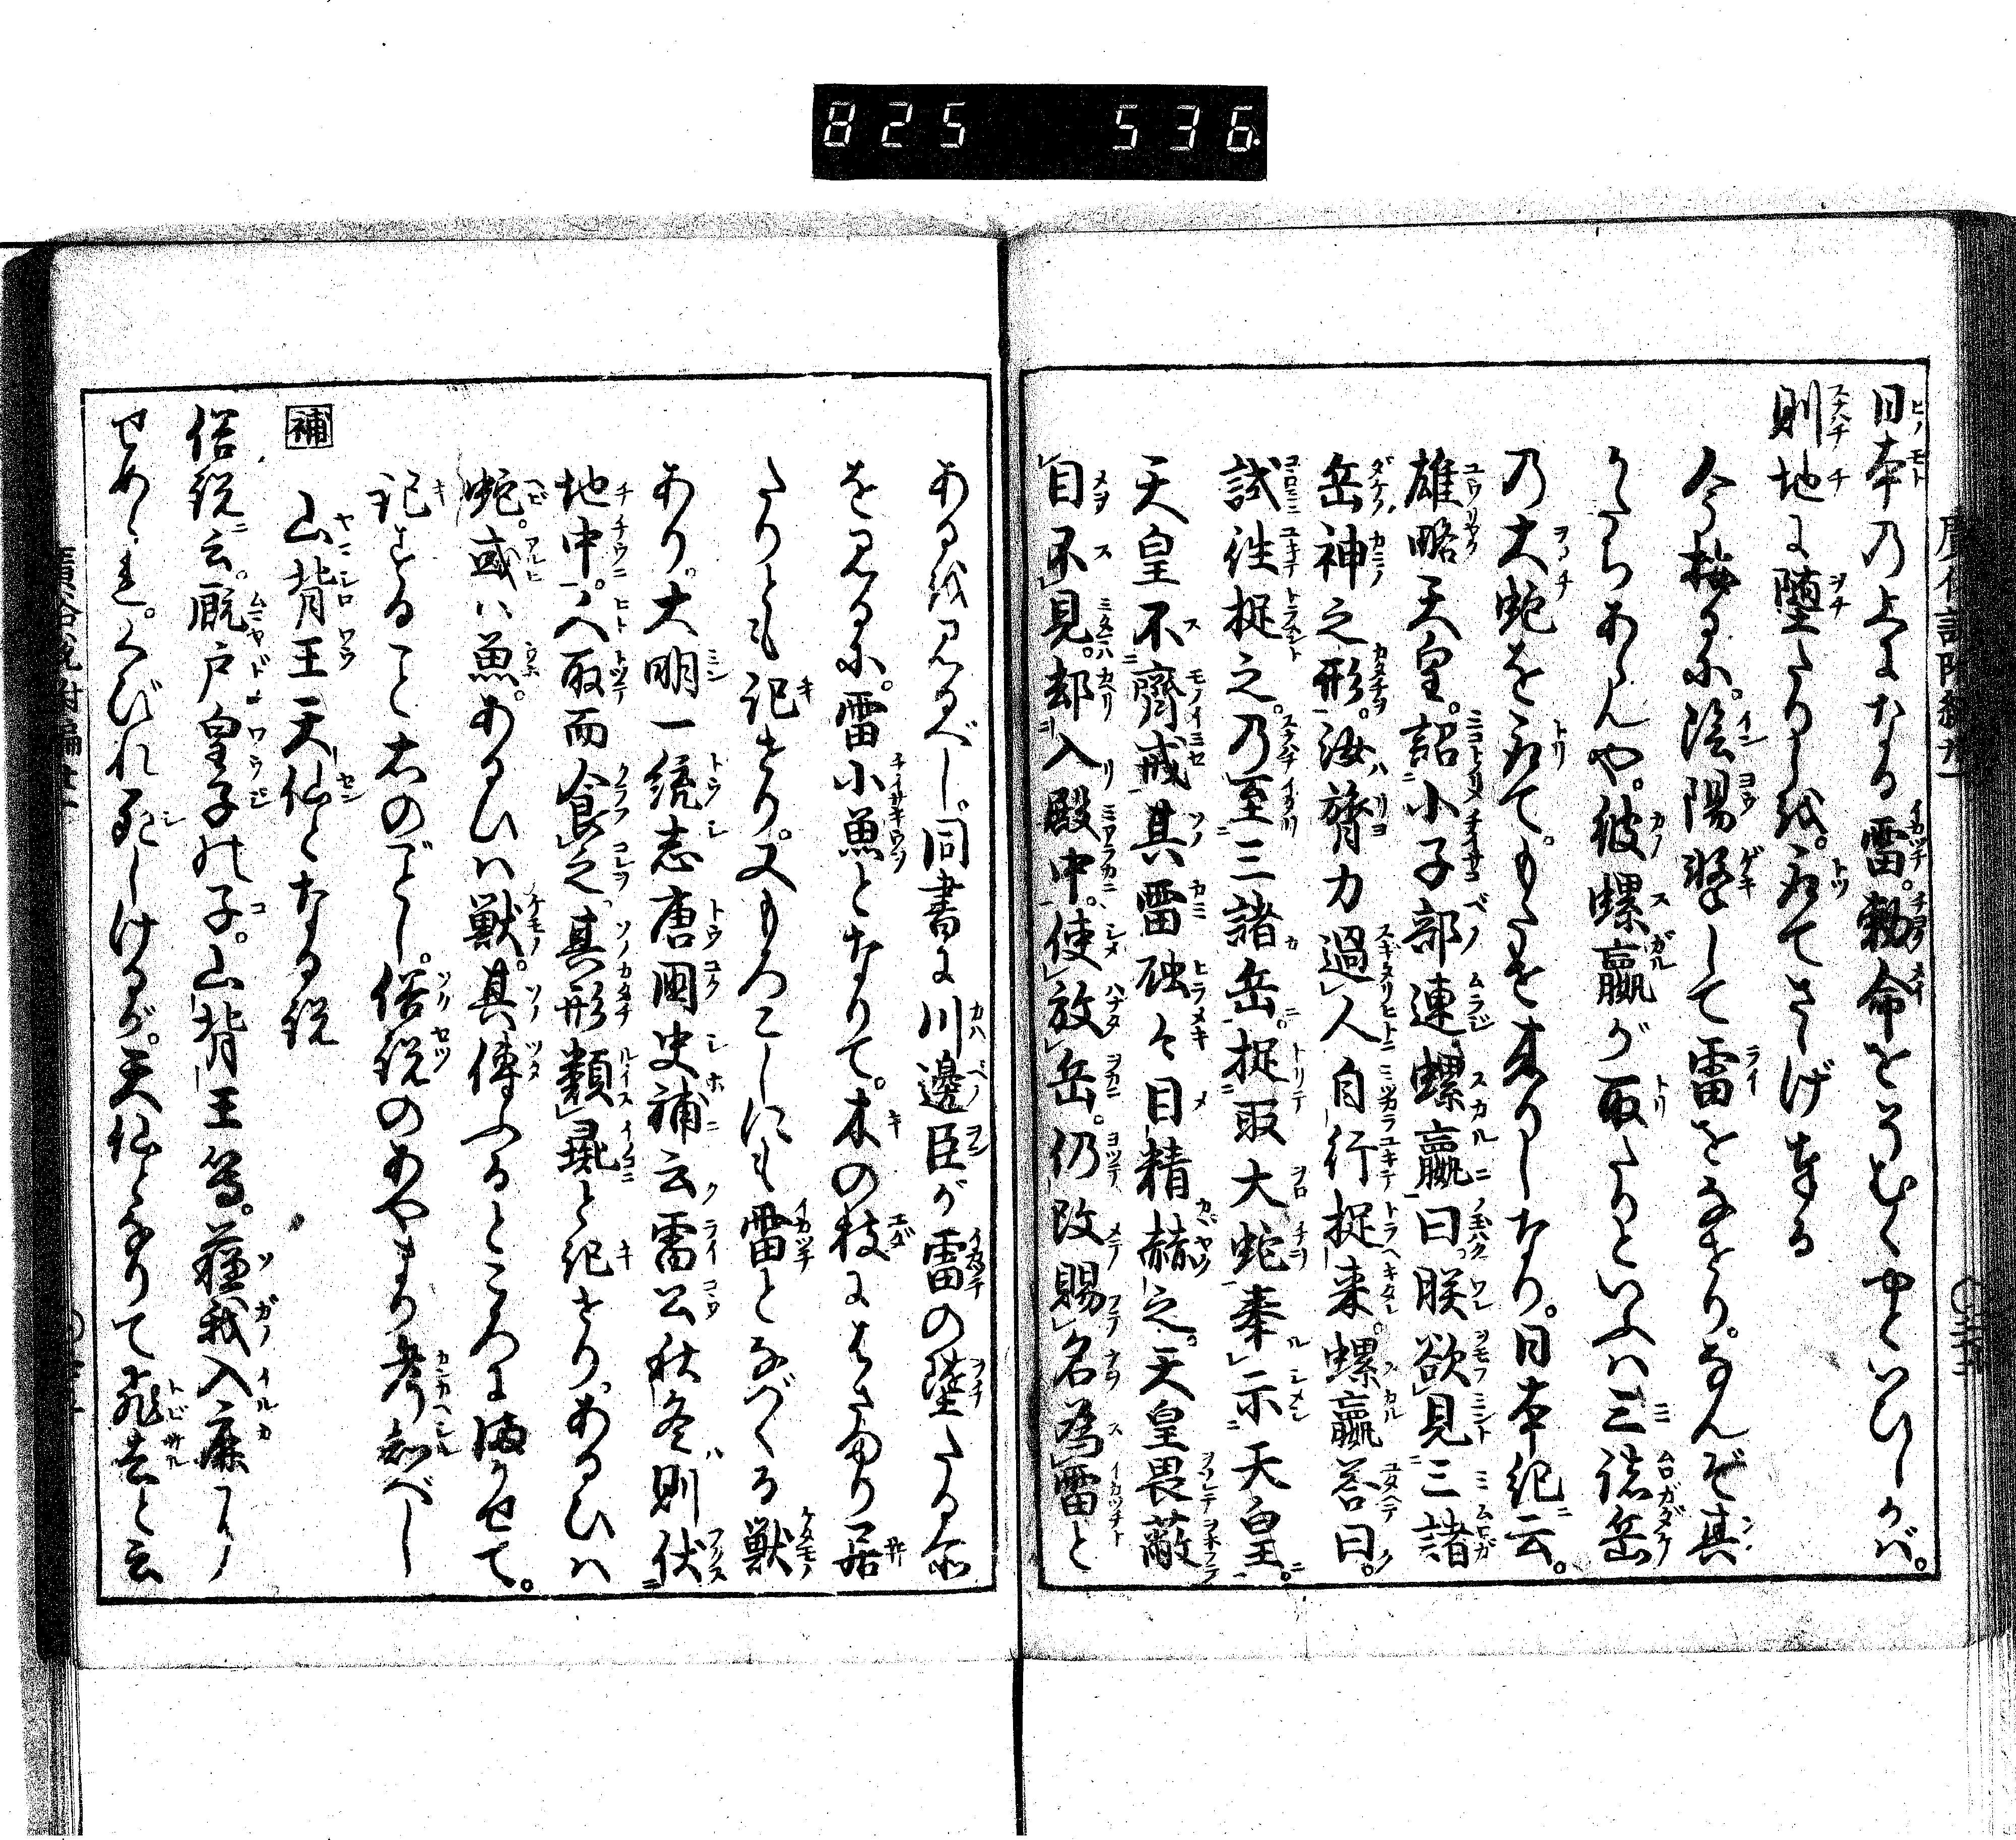 825 536
日本の上なる雷。勅命をそむくやといひしかバ。
則地に墮たりしを。取てさゝげ奉る
今按るに。陰陽撃して雷をなせり。なんぞ其
かたちあらんや。彼螺蠃が取たるといふハ三諸岳
の大蛇を取て。もたせ来りしなり。日本紀云。
雄略天皇。詔小子部連螺蠃曰朕欲見三諸
岳神之形。汝膂力過人自行捉来。螺蠃荅曰。
試往捉之。乃至三諸岳。捉取大蛇奉示天皇。
天皇不齊戒其雷虺々目精赫之。天皇畏蔽
目不見。却入殿中。使放岳。仍改賜名為雷と
ある成見るべし。同書に川邊臣が雷の墜たる所
を見るに。雷小魚となりて。木の枝にはさまり居
たりとも記せり。又もろこしにも雷となづくる獣
あり。大明一統志唐國史補云雷公秋冬則伏
地中。人取而食之其形類彘と紀せり。あるひハ
蛇。或ハ魚。あるひハ獣。其傳ふるところにまかせて。
記せること右のごとし。俗説のあやまり考知べし
補 山背王天仙となる説
俗説云。厩戸皇子の子。山背王等。蘓我入鹿に
せめられ。くびれ死しけるが。天仙となりて飛去と云